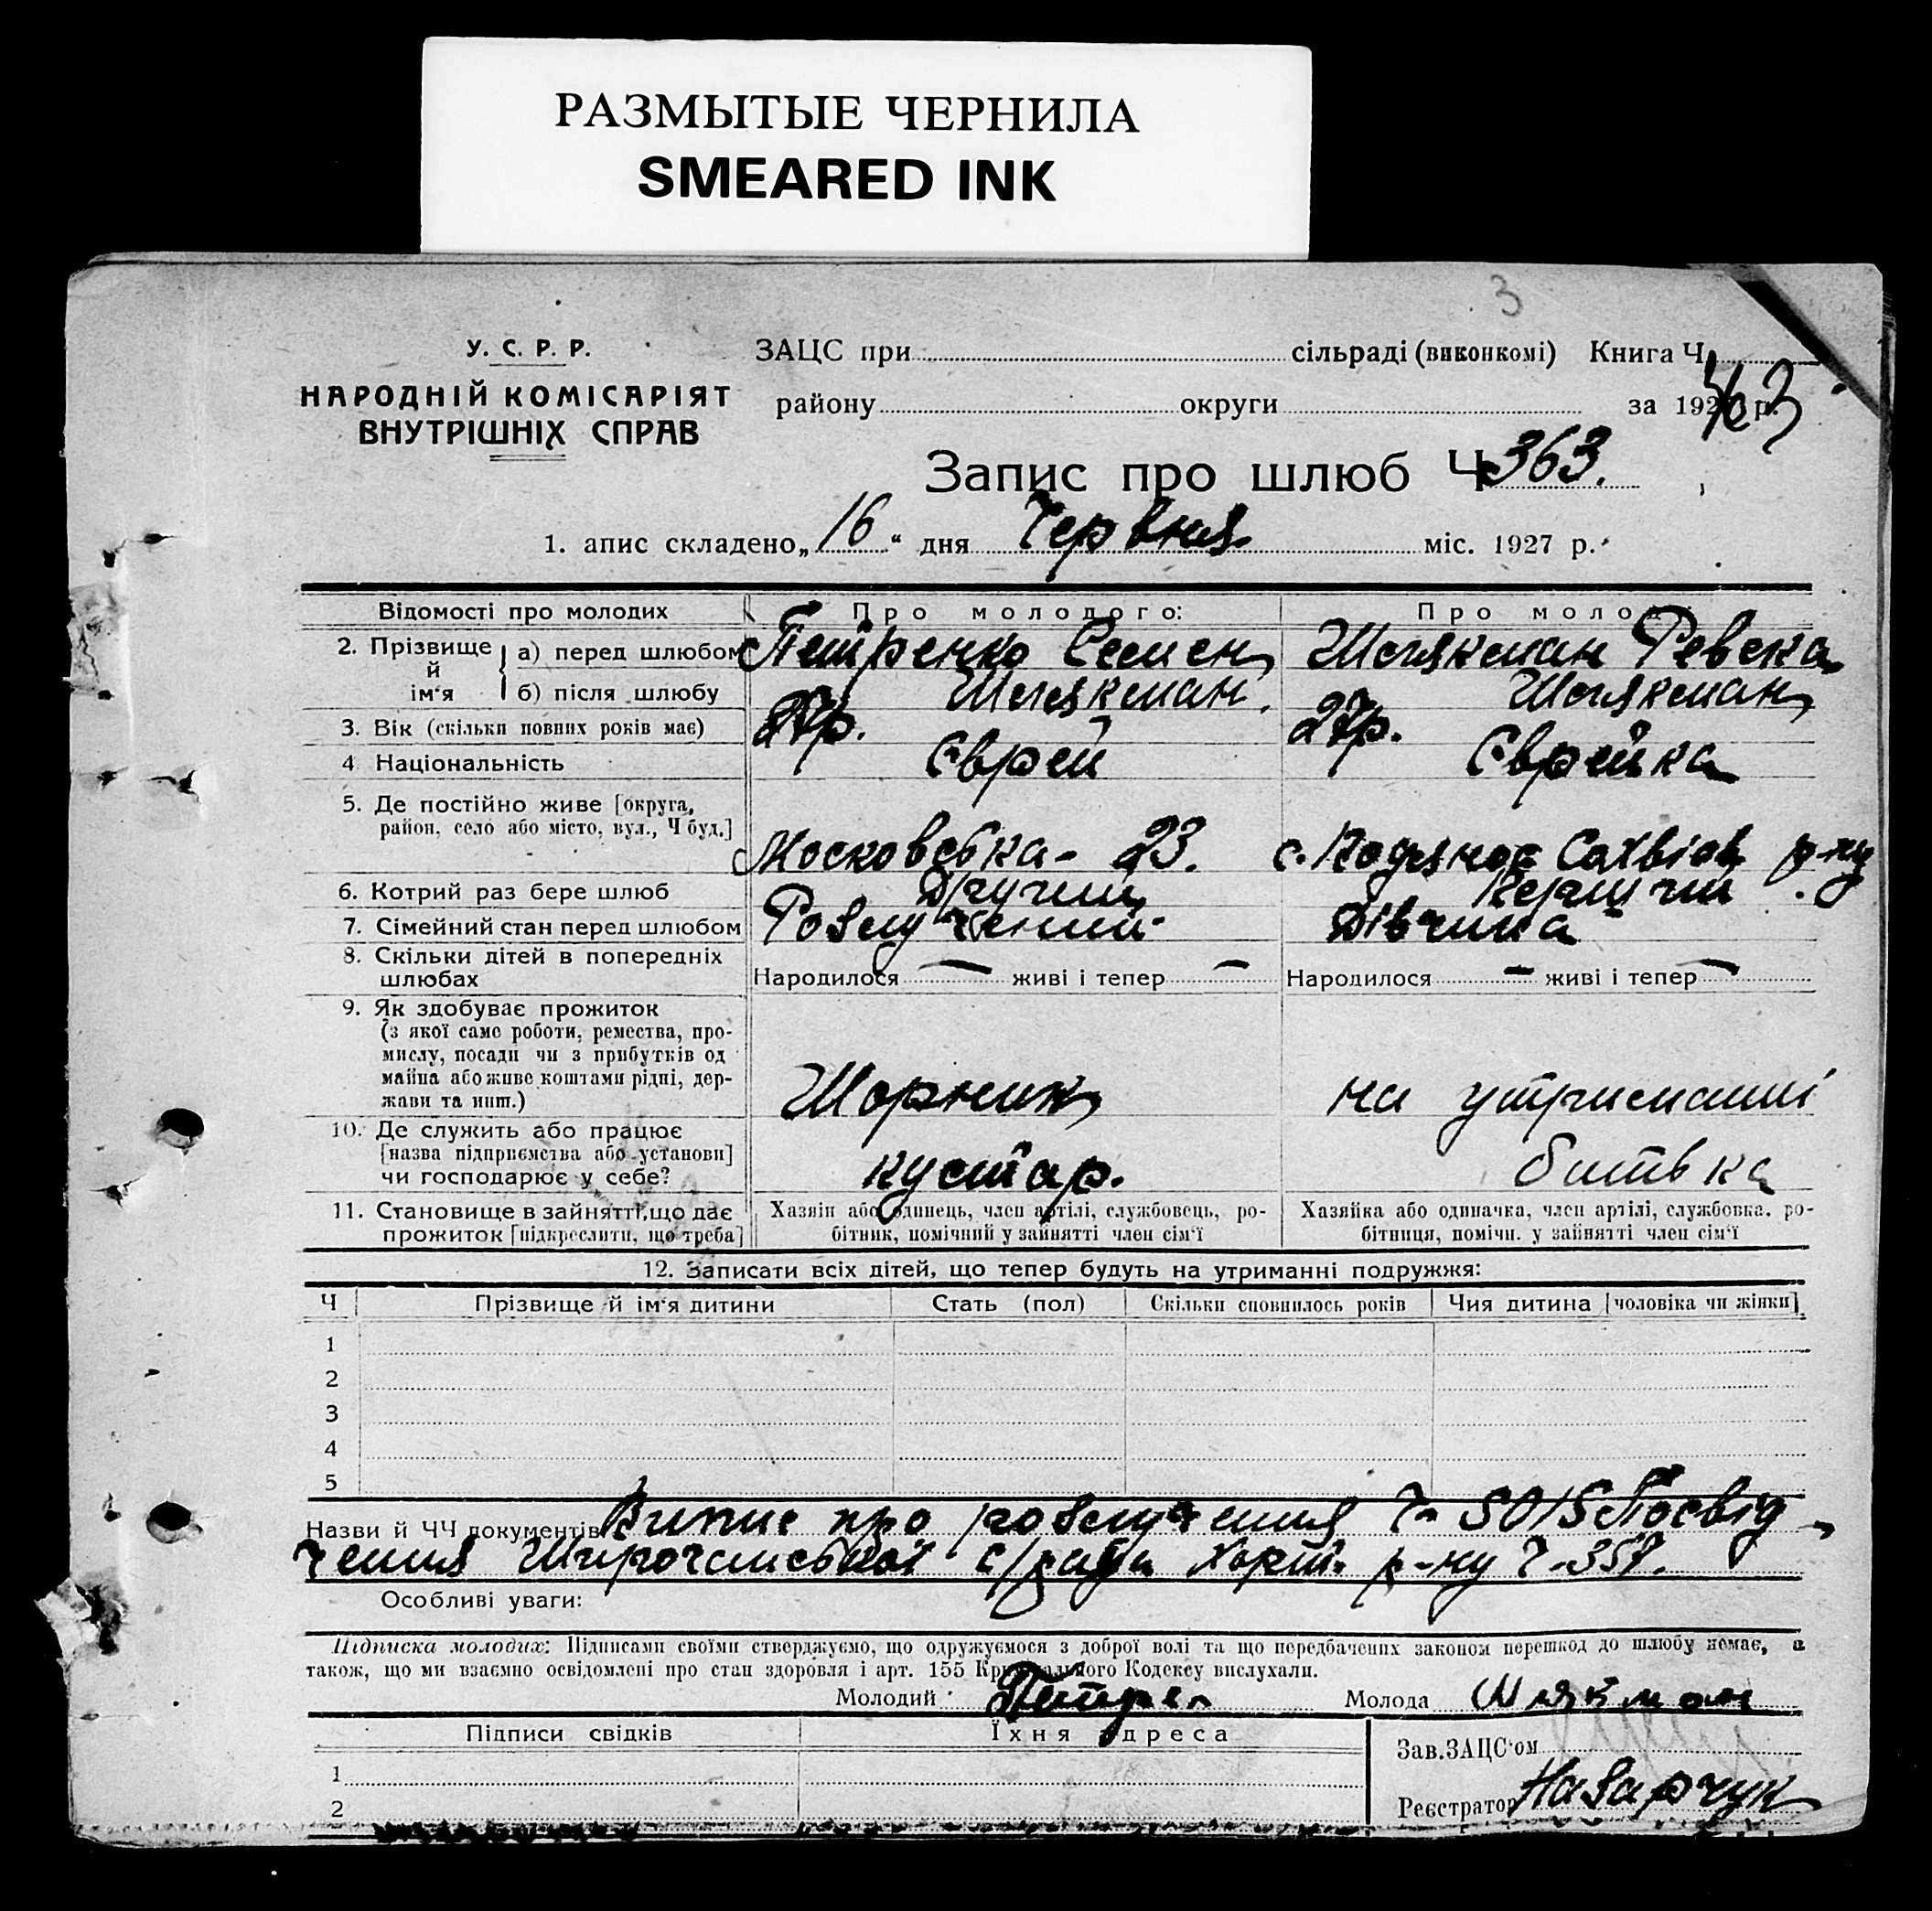 РАЗМЫТЫЕ ЧЕРНИЛА
SMEARED INK
3
У. С. Р. Р.
НАРОДНІЙ КОМІСАРІЯТ
ВНУТРІШНІХ СПРАВ
ЗАЦС при сільраді (виконкомі) Книга Ч.
району округи за 192 р.
Запис про шлюб Ч 363.
1. апис складено „16“ дня Червня міс. 1927 р.
Відомості про молодих Про молодого: Про молод
2. Прізвище й ім‘я
а) перед шлюбом Петренко Семен Шлякман Ревека
б) після шлюбу Шлякман. Шлякман
3. Вік (скільки повних років має) 27р. 27р.
4 Національність Єврей Єврейка
5. Де постійно живе [округа,
район, село або місто, вул., Ч буд.] Московська - 23. с. р-ну
6. Котрий раз бере шлюб Другий Перший
7. Сімейний стан перед шлюбом Розлучений Дівчина
8. Скільки дітей в попередніх
шлюбах Народилося — живі і тепер — Народилося — живі і тепер —
9. Як здобуває прожиток
(з якої саме роботи, ремества, про-
мислу, посади чи з прибутків од
майна або живе коштами рідні, дер-
жави та инш.) Шорник на утриманні
10. Де служить або працює
[назва підприємства або установи]
чи господарює у себе? кустар. батька
11. Становище в занятті, що дає
прожиток [підкреслити, що треба]
Хазяїн або одинець, член артілі, службовець, ро-
бітник, помічний у занятті член сім‘ї
Хазяйка або одиначка, член артілі, службовка, ро-
бітниця, помічн. у занятті член сім‘ї
12. Записати всіх дітей, що тепер будуть на утриманні подружжя:
Ч Прізвище й ім‘я дитини Стать (пол) Скільки сповнилось років Чия дитина [чоловіка чи жінки]
1
2
3
4
5
Назви й ЧЧ документів Випис про розлучення Ч. 5015 Посвід-
чення с/ради Хорт. р-ну Ч. 357.
Особливі уваги:
Підписка молодих: Підписами своїми стверджуємо, що одружуємося з доброї волі та що передбачених законом перешкод до шлюбу немає, а
також, що ми взаємно освідомлені про стан здоровля і арт. 155 Кримінального Кодексу вислухали.
Молодий Петрен Молода Шлякман
Підписи свідків Їхня адреса
Зав. ЗАЦС‘ом
1
Реєстратор Назарчук
2